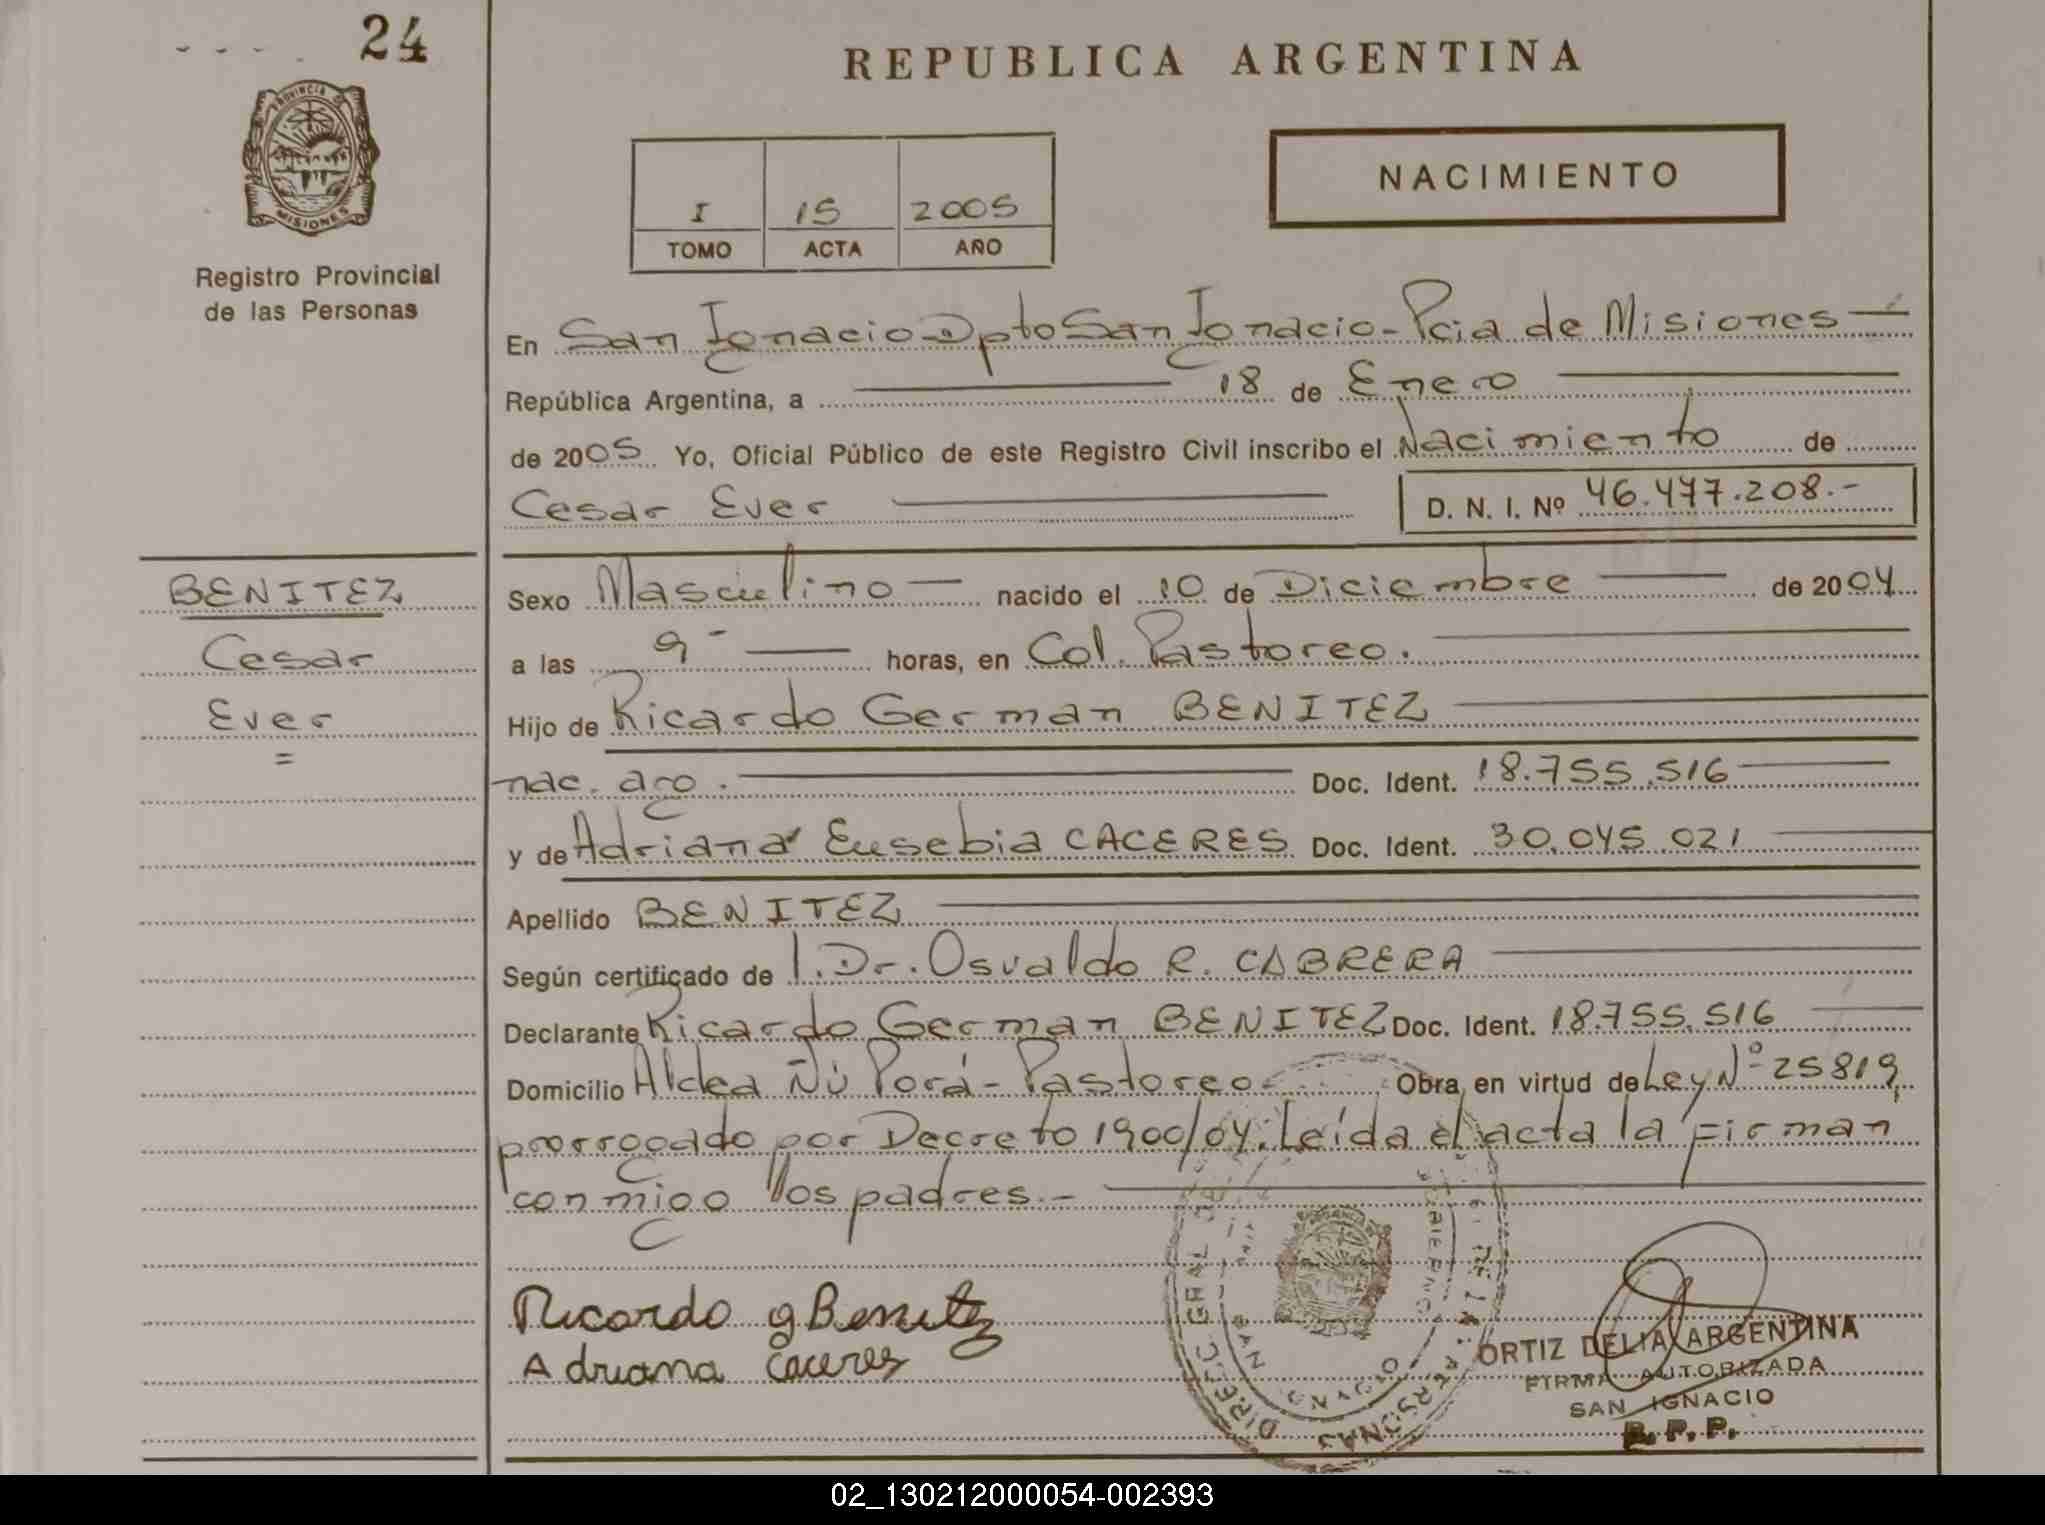 24
PROVINCIA DE
MISIONES
Registro Provincial
de las Personas
REPUBLICA ARGENTINA
I 15 2005
TOMO ACTA AÑO
NACIMIENTO
En San Ignacio Dpto San Ignacio - Pcia de Misiones
República Argentina, a 18 de Enero
de 2005 Yo, Oficial Público de este Registro Civil inscribo el Nacimiento de
Cesar Ever D. N. I. Nº 46.477.208.-
BENITEZ
Cesar
Ever
=
Sexo Masculino nacido el 10 de Diciembre de 2004
a las 9 horas, en Col. Pastoreo.
Hijo de Ricardo German BENITEZ
nac. arg. Doc. Ident. 18.755.516
y de Adriana Eusebia CACERES Doc. Ident. 30.045.021
Apellido BENITEZ
Según certificado de 1. Dr. Osvaldo R. CABRERA
Declarante Ricardo German BENITEZ Doc. Ident. 18.755.516
Domicilio Aldea Ñú Porá - Pastoreo Obra en virtud de Ley Nº 25819,
prorrogado por Decreto 1900/04. Leída el acta la firman
conmigo los padres.-
Ricardo g Benitez
Adriana Caceres
ORTIZ DELIA ARGENTINA
FIRMA AUTORIZADA
SAN IGNACIO
R. P. P.
SAN IGNACIO
PERSONAS
02_130212000054-002393